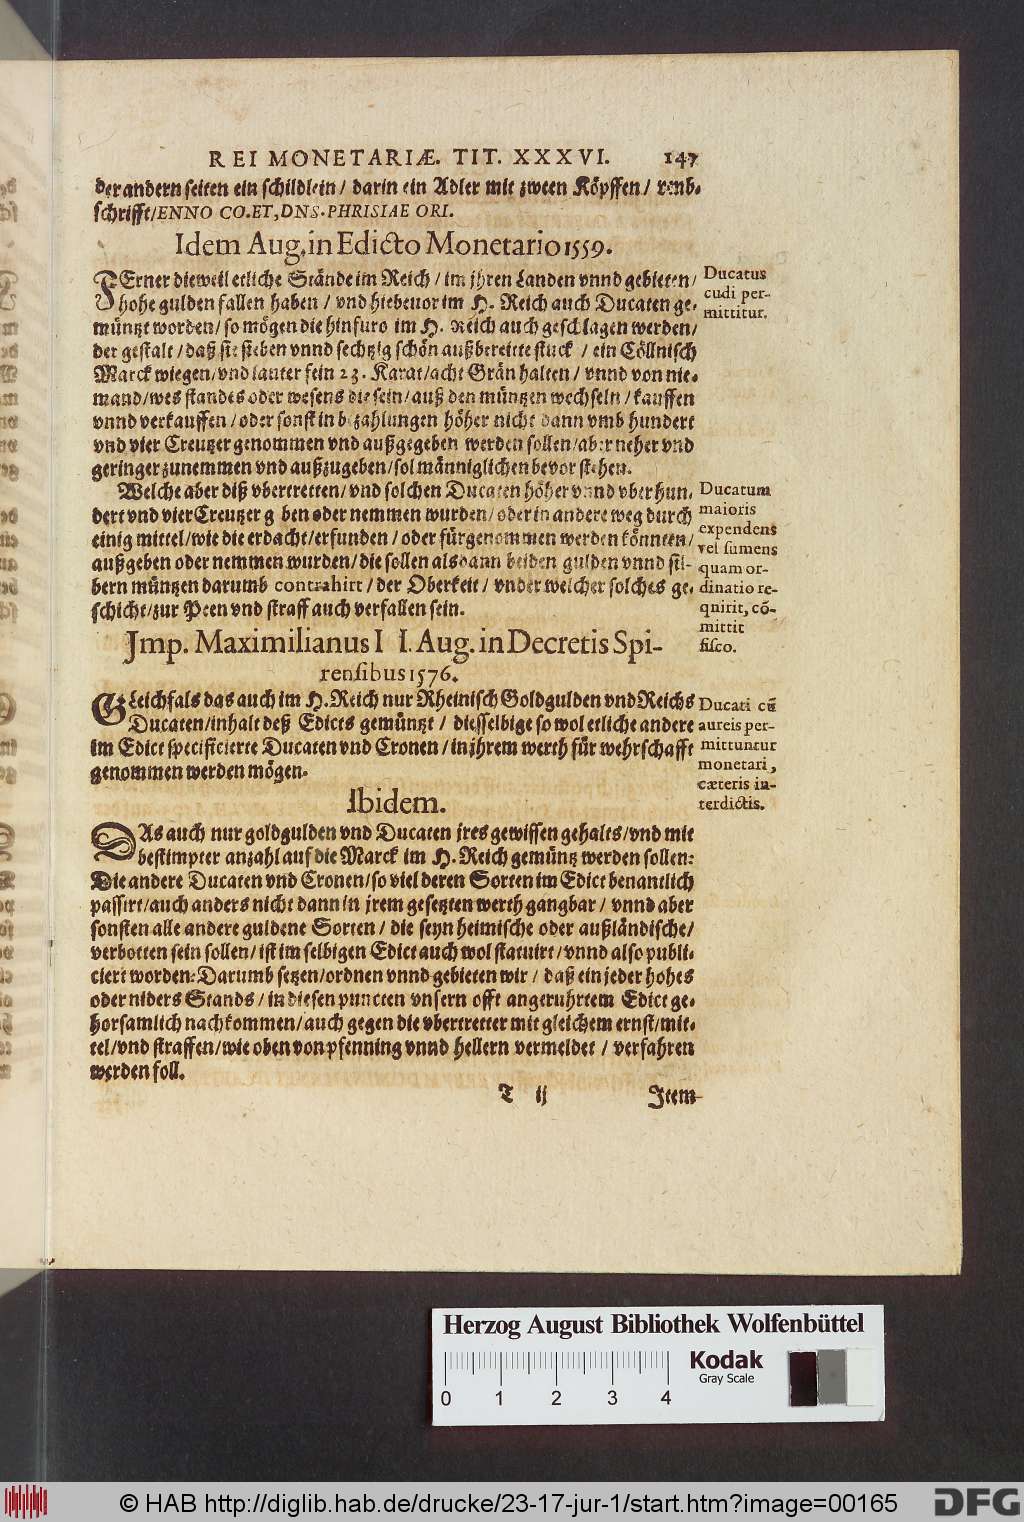 REI MONETARIÆ. TIT. XXXVI. 147
der andern seiten ein schildlein / darin ein Adler mit zween Köpffen / vmb-
schrifft/ENNO CO.ET,DNS.PHRISIAE ORI.
Idem Aug. in Edicto Monetario 1559.
FErner dieweil etliche Stände im Reich / im jhren Landen vnnd gebieten /
hohe gulden fallen haben / vnd hiebeuor im H. Reich auch Ducaten ge-
müntzt worden / so mögen die hinfuro im H. Reich auch geschlagen werden /
der gestalt / daß sie sieben vnnd sechtzig schön außbereitte stuck / ein Cöllnisch
Marck wiegen/vnd lauter fein 23. Karat/acht Grän halten / vnnd von nie-
mand/wes standes oder wesens die sein/auß den müntzen wechseln / kauffen
vnnd verkauffen / oder sonst in bezahlungen höher nicht dann vmb hundert
vnd vier Creutzer genommen vnd außgegeben werden sollen/aber neher vnd
geringer zunemmen vnd außzugeben/sol männiglichen bevor stehen.
Welche aber diß vbertretten/vnd solchen Ducaten höher vnnd vber hun-
dert vnd vier Creutzer g ben oder nemmen wurden/ oder in andere weg durch
einig mittel/wie die erdacht/erfunden / oder fürgenommen werden könnten/
außgeben oder nemmen wurden/die sollen alsdann beiden gulden vnnd sil-
bern müntzen darumb contrahirt / der Oberkeit / vnder welcher solches ge-
schicht/zur Peen vnd straff auch verfallen sein.
Jmp. Maximilianus I I. Aug. in Decretis Spi-
rensibus 1576.
GLeichfals das auch im H. Reich nur Rheinisch Goldgulden vnd Reichs
Ducaten/inhalt deß Edicts gemüntzt / diesselbige so wol etliche andere
im Edict specificierte Ducaten vnd Cronen / in jhrem werth für wehrschafft
genommen werden mögen.
Ibidem.
DAs auch nur goldgulden vnd Ducaten jres gewissen gehalts/vnd mit
bestimpter anzahl auf die Marck im H. Reich gemüntz werden sollen:
Die andere Ducaten vnd Cronen/so viel deren Sorten im Edict benantlich
passirt/auch anders nicht dann in jrem gesetzten werth gangbar / vnnd aber
sonsten alle andere guldene Sorten / die seyn heimische oder außländische/
verbotten sein sollen/ist im selbigen Edict auch wol statuirt/vnnd also publi-
ciert worden: Darumb setzen/ordnen vnnd gebieten wir / daß ein jeder hohes
oder niders Stands / in diesen puncten vnsern offt angeruhrtem Edict ge-
horsamlich nachkommen/auch gegen die vbertretter mit gleichem ernst/mit-
tel/vnd straffen/wie oben von pfenning vnnd hellern vermeldet / verfahren
werden soll.
T ij Jtem
Ducatus
cudi per-
mittitur.
Ducatum
maioris
expendens
vel sumens
quam or-
dinatio re-
quirit, cõ-
mittit
fisco.
Ducati cũ
aureis per-
mittuntur
monetari,
cæteris in-
terdictis.
Herzog August Bibliothek Wolfenbüttel
Kodak
Gray Scale
0 1 2 3 4
© HAB http://diglib.hab.de/drucke/23-17-jur-1/start.htm?image=00165
DFG